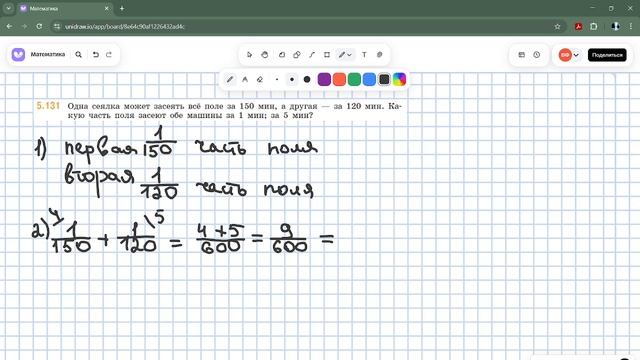 Математика
unidraw.io/app/board/8e64c90af1226432ad4c
Математика
Поделиться
5.131 Одна сеялка может засеять всё поле за 150 мин, а другая — за 120 мин. Ка-
кую часть поля засеют обе машины за 1 мин; за 5 мин?
1) первая 1/150 часть поля
вторая 1/120 часть поля
2) 4\ 1/150 + 1/120 \5 = 4+5/600 = 9/600 =